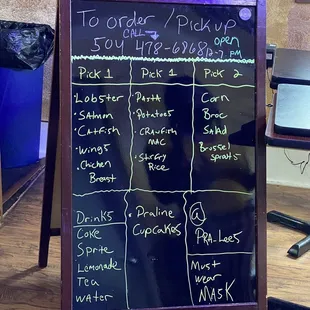 To order / Pick up
CALL →
504 478-6868 open
2-7 PM
Pick 1
• Lobster
• Salmon
• Catfish
• Wings
• Chicken
Breast
Pick 1
• Pasta
• Potatoes
• Crawfish
Mac
• Stirfry
Rice
Pick 2
Corn
Broc
Salad
Brussel
sprouts
Drinks
Coke
Sprite
Lemonade
Tea
Water
• Praline
Cupcakes
@
PRA-Lees
Must
wear
MASK